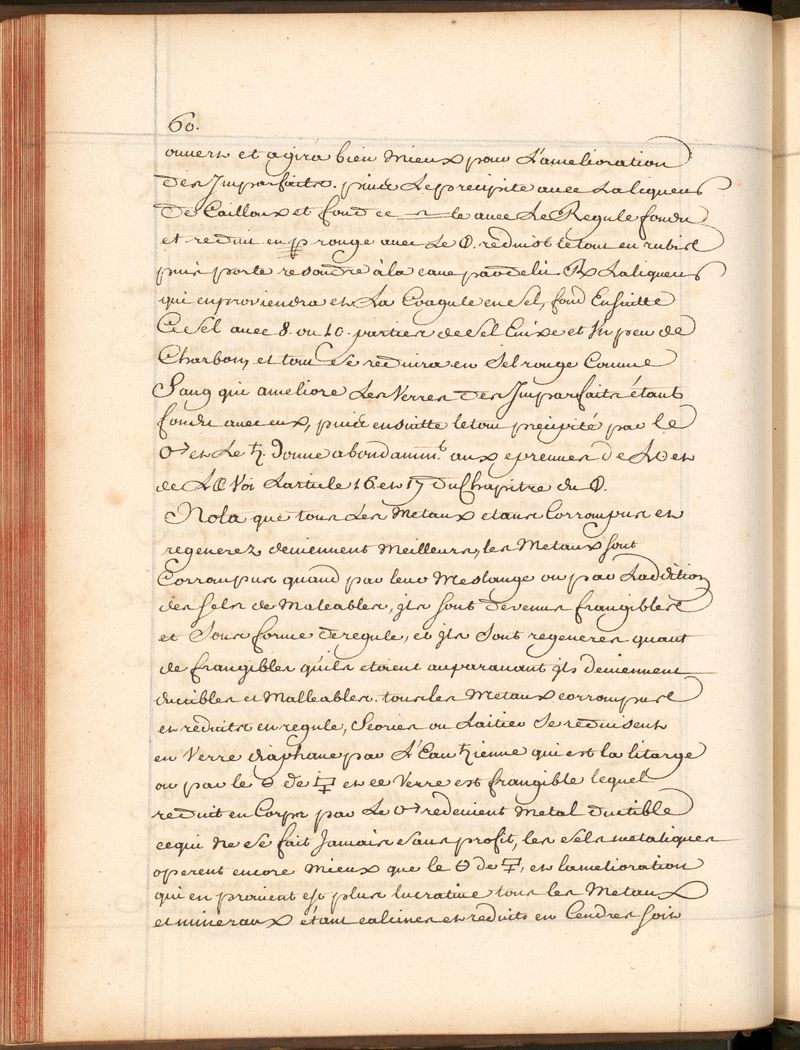 60.
ouuert et agira bien mieux pour L'amelioration
Des Jmparfaits. puis Le precipite auec La liqueur
De Cailloux et fond ce le auec Le Regule fondu
et reduit en rouge auec Le ☉. reduist le tout en rubis
puis porte resoudre à la caue ℞ La liqueur
qui en prouiendra et La Coagule en sel, fond Ensuitte
Ce sel auec 8. ou 10. parties de sel Enixe et Vn peu de
Charbon, et tout se reduira en Sel rouge Comme
Sang qui ameliore Les Verres Des Jmparfaits étant
fondu auec eux, puis ensuitte le tout precipité par le
♂ et Le ♄. Donne abondamm.t aux epreuues de et
de Voi Larticle 16. et 17 Du Chapitre du
Nota que tous Les Metaux etant Corrompus et
regenerez deuiennent Meilleurs, les Metaux sont
Corrompus quand par leur Meslange ou par Laddition
des sels de Maleables, jls sont deuenus frangibles
et Sous forme de regule, et jls sont regeneres quant
de frangibles quils etoient auparauant jls deuiennent
ductibles et Malleables. tous les Metaux corrompus
et reduits en regule, Scories ou Laitier se reduisent
en Verre diaphane par L'Eau ♄ienne qui est la litarge
ou par le de et ce Verre est frangible lequel
reduit en Corps par Le ♂ redeuient Metal ductible
ce qui Ne se fait Jamais sans profit, les sels metaliques
operent encore mieux que le de , et lamelioration
qui en prouient est plus lucratiue tous les Metaux
et mineraux étant calcines et reduits en Cendres soit